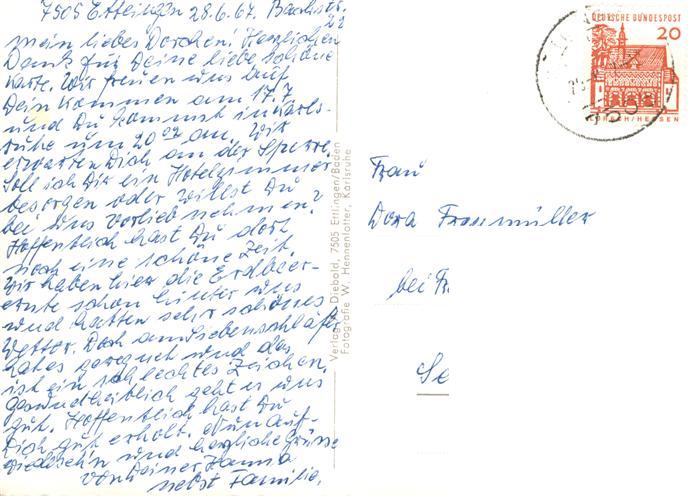 7505 Ettlingen 28.6.67. Bachstr.
22
mein liebes Dorchen! Herzlichen
Dank für Deine liebe schöne
Karte. Wir freuen uns auf
Dein Kommen am 17.7
und Du kommst in Karls-
ruhe um 20 02 an. Wir
erwarten Dich an der Sperre.
Soll ich Dir ein Hotelzimmer
besorgen oder willst Du
bei uns vorlieb nehmen?
Hoffentlich hast Du dort
noch eine schöne Zeit.
Wir haben hier die Erdbeer-
ernte schon hinter uns
und hatten sehr schönes
Wetter. Doch am Siebenschläfer
hat es geregnet und das
ist ein schlechtes Zeichen.
Gesundheitlich geht es uns
gut. Hoffentlich hast Du
Dich gut erholt. Nun Auf-
wiederseh'n und herzliche Grüsse
von Deiner Hanna
nebst Familie.
Verlag Diebold, 7505 Ettlingen/Baden
Fotografie W. Hennenlotter, Karlsruhe
DEUTSCHE BUNDESPOST
20
LORSCH/HESSEN
Frau
Dora Fraumüller
bei Fr
Se